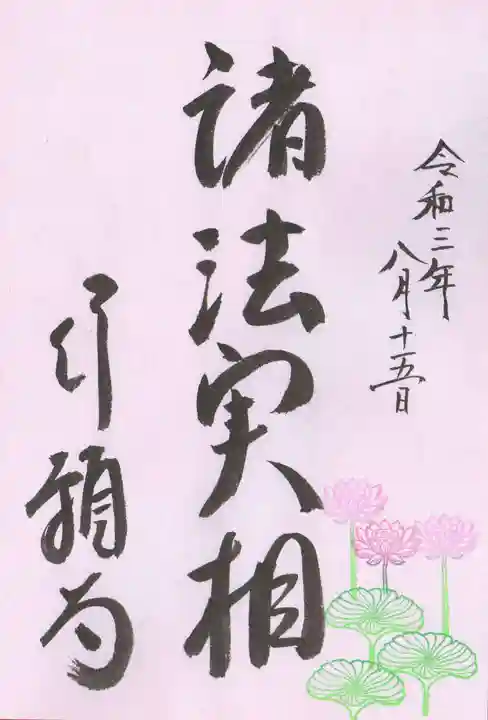 令和三年
八月十五日
諸法実相
行願寺